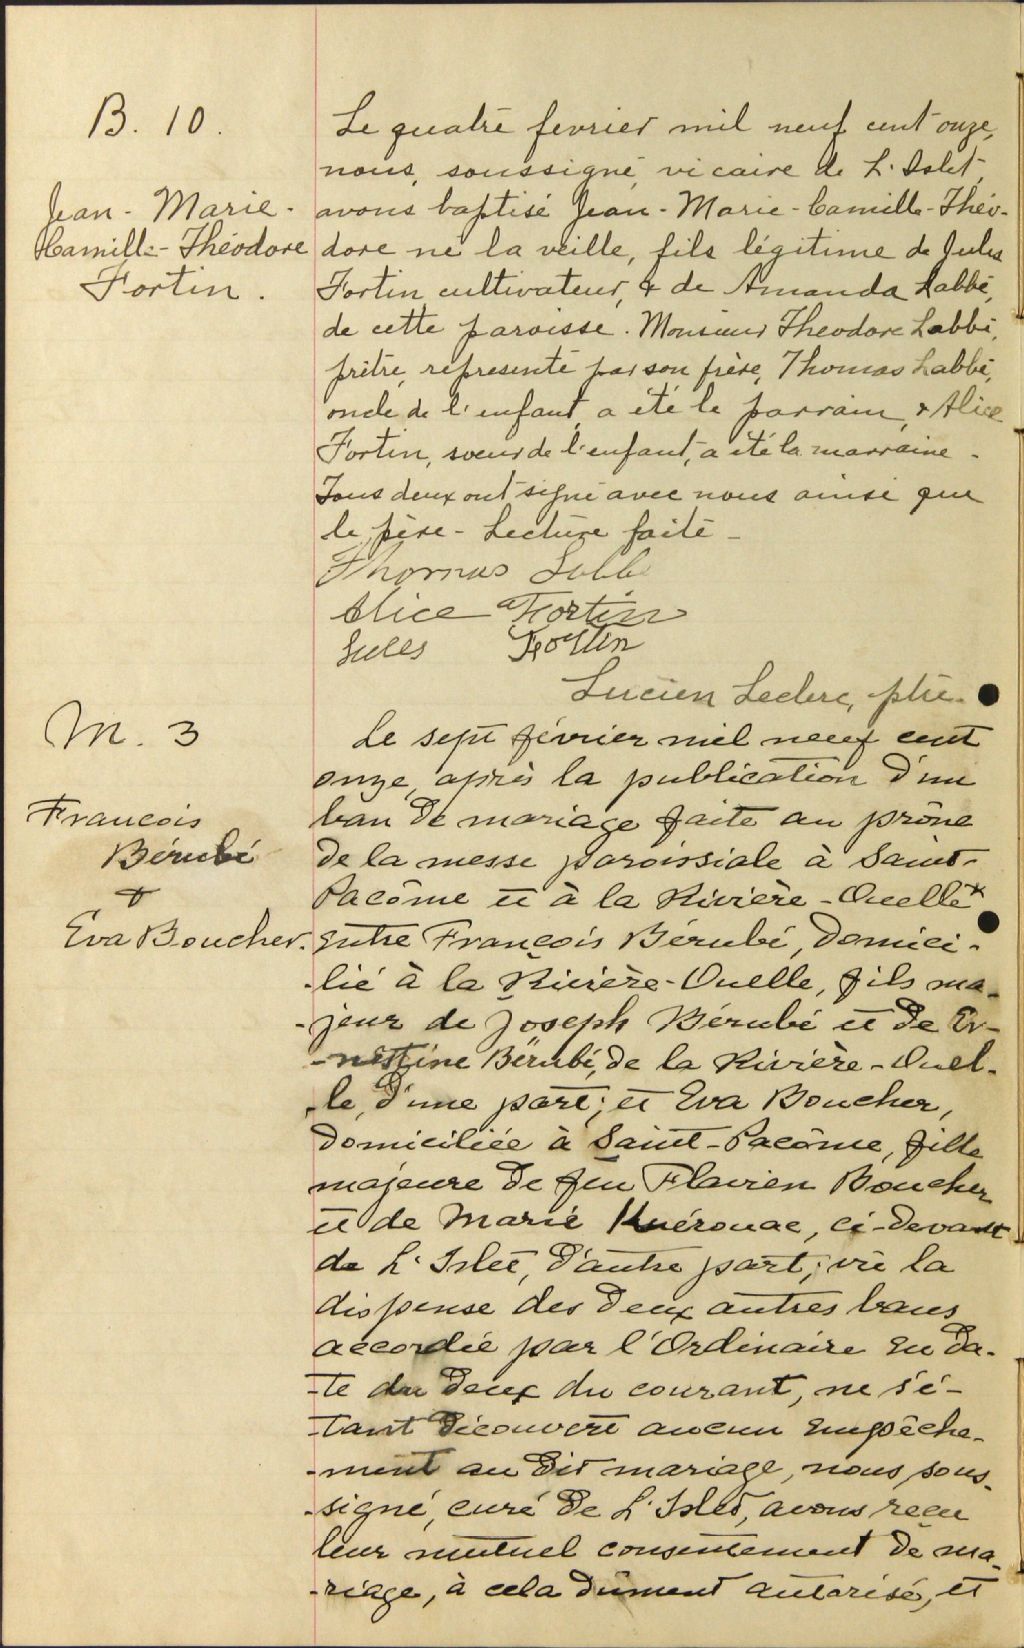 B. 10.
Jean - Marie -
Camille - Théodore
Fortin.
Le quatre fevrier mil neuf cent onze,
nous, soussigné, vicaire de L'Islet,
avons baptisé Jean - Marie - Camille - Théo-
dore né la veille, fils légitime de Jules
Fortin cultivateur, & de Amanda Labbé,
de cette paroisse. Monsieur Theodore Labbé,
prêtre, représenté par son frère, Thomas Labbé,
oncle de l'enfant, a été le parrain, & Alice
Fortin, soeur de l'enfant, a été la marraine -
Tous deux ont signé avec nous ainsi que
le père - Lecture faite -
Thomas Labbé
Alice Fortin
Jules Fortin
Lucien Leclerc, ptre.
M. 3
Francois
Bérubé
+
Eva Boucher.
Le sept février mil neuf cent
onze, après la publication d'un
ban de mariage faite au prône
de la messe paroissiale à Saint-
Pacôme et à la Rivière - Ouelle*
entre François Bérubé, domici-
-lié à la Rivière - Ouelle, fils ma-
-jeur de Joseph Bérubé et de Er-
-nestine Bérubé, de la Rivière - Ouel-
-le, d'une part; et Eva Boucher,
domiciliée à Saint - Pacôme, fille
majeure de feu Flavien Boucher
et de Marie Kuérouac, ci-devant
de L'Islet, d'autre part; vu la
dispense des deux autres bans
accordée par l'Ordinaire en da-
-te du deux du courant, ne s'é-
-tant découvert aucun empêche-
-ment au dit mariage, nous, sous-
-signé, curé de L'Islet, avons reçu
leur mutuel consentement de ma-
-riage, à cela dûment autorisé, et